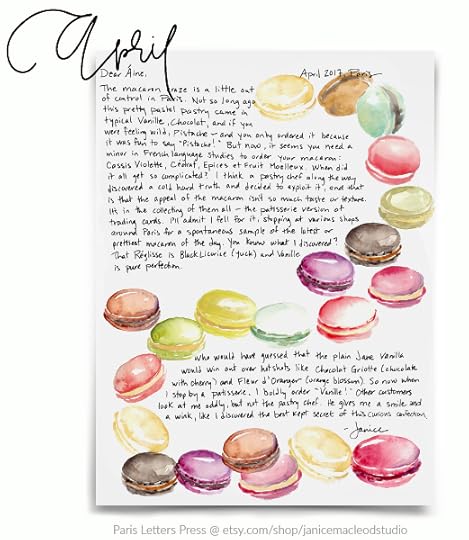 April
Dear Áine,
April 2017, Paris
The macaron craze is a little out
of control in Paris. Not so long ago
this pretty pastel pastry came a
typical Vanille, Chocolat, and if you
were feeling wild, Pistache – and you only ordered it because
it was fun to say "Pistache!" But now, it seems you need a
minor in French language studies to order your macaron:
Cassis Violette, Cédrat, Épices et Fruit Moelleux. When did
it all get so complicated? I think a pastry chef along the way
discovered a cold hard truth and decided to exploit it, and that
is that the appeal of the macaron isn't so much taste or texture.
It's in the collecting of them all – the patisserie version of
trading cards. I'll admit I fell for it, stopping at various shops
around Paris for a spontaneous sample of the latest or
prettiest macaron of the day. You know what I discovered?
That Réglisse is Black Licorice (yuck) and Vanille
is pure perfection.
Who would have guessed that the plain Jane Vanilla
would win out over hotshots like Chocolat Griotte (chocolate
with cherry) and Fleur d'Oranger (orange blossom). So now when
I stop by a patisserie, I boldly order "Vanille!" Other customers
look at me oddly, but not the pastry chef. He gives me a smile and
a wink, like I discovered the best kept secret of this curious confection.
- Janice
Paris Letters Press @ etsy.com/shop/janicemacleodstudio